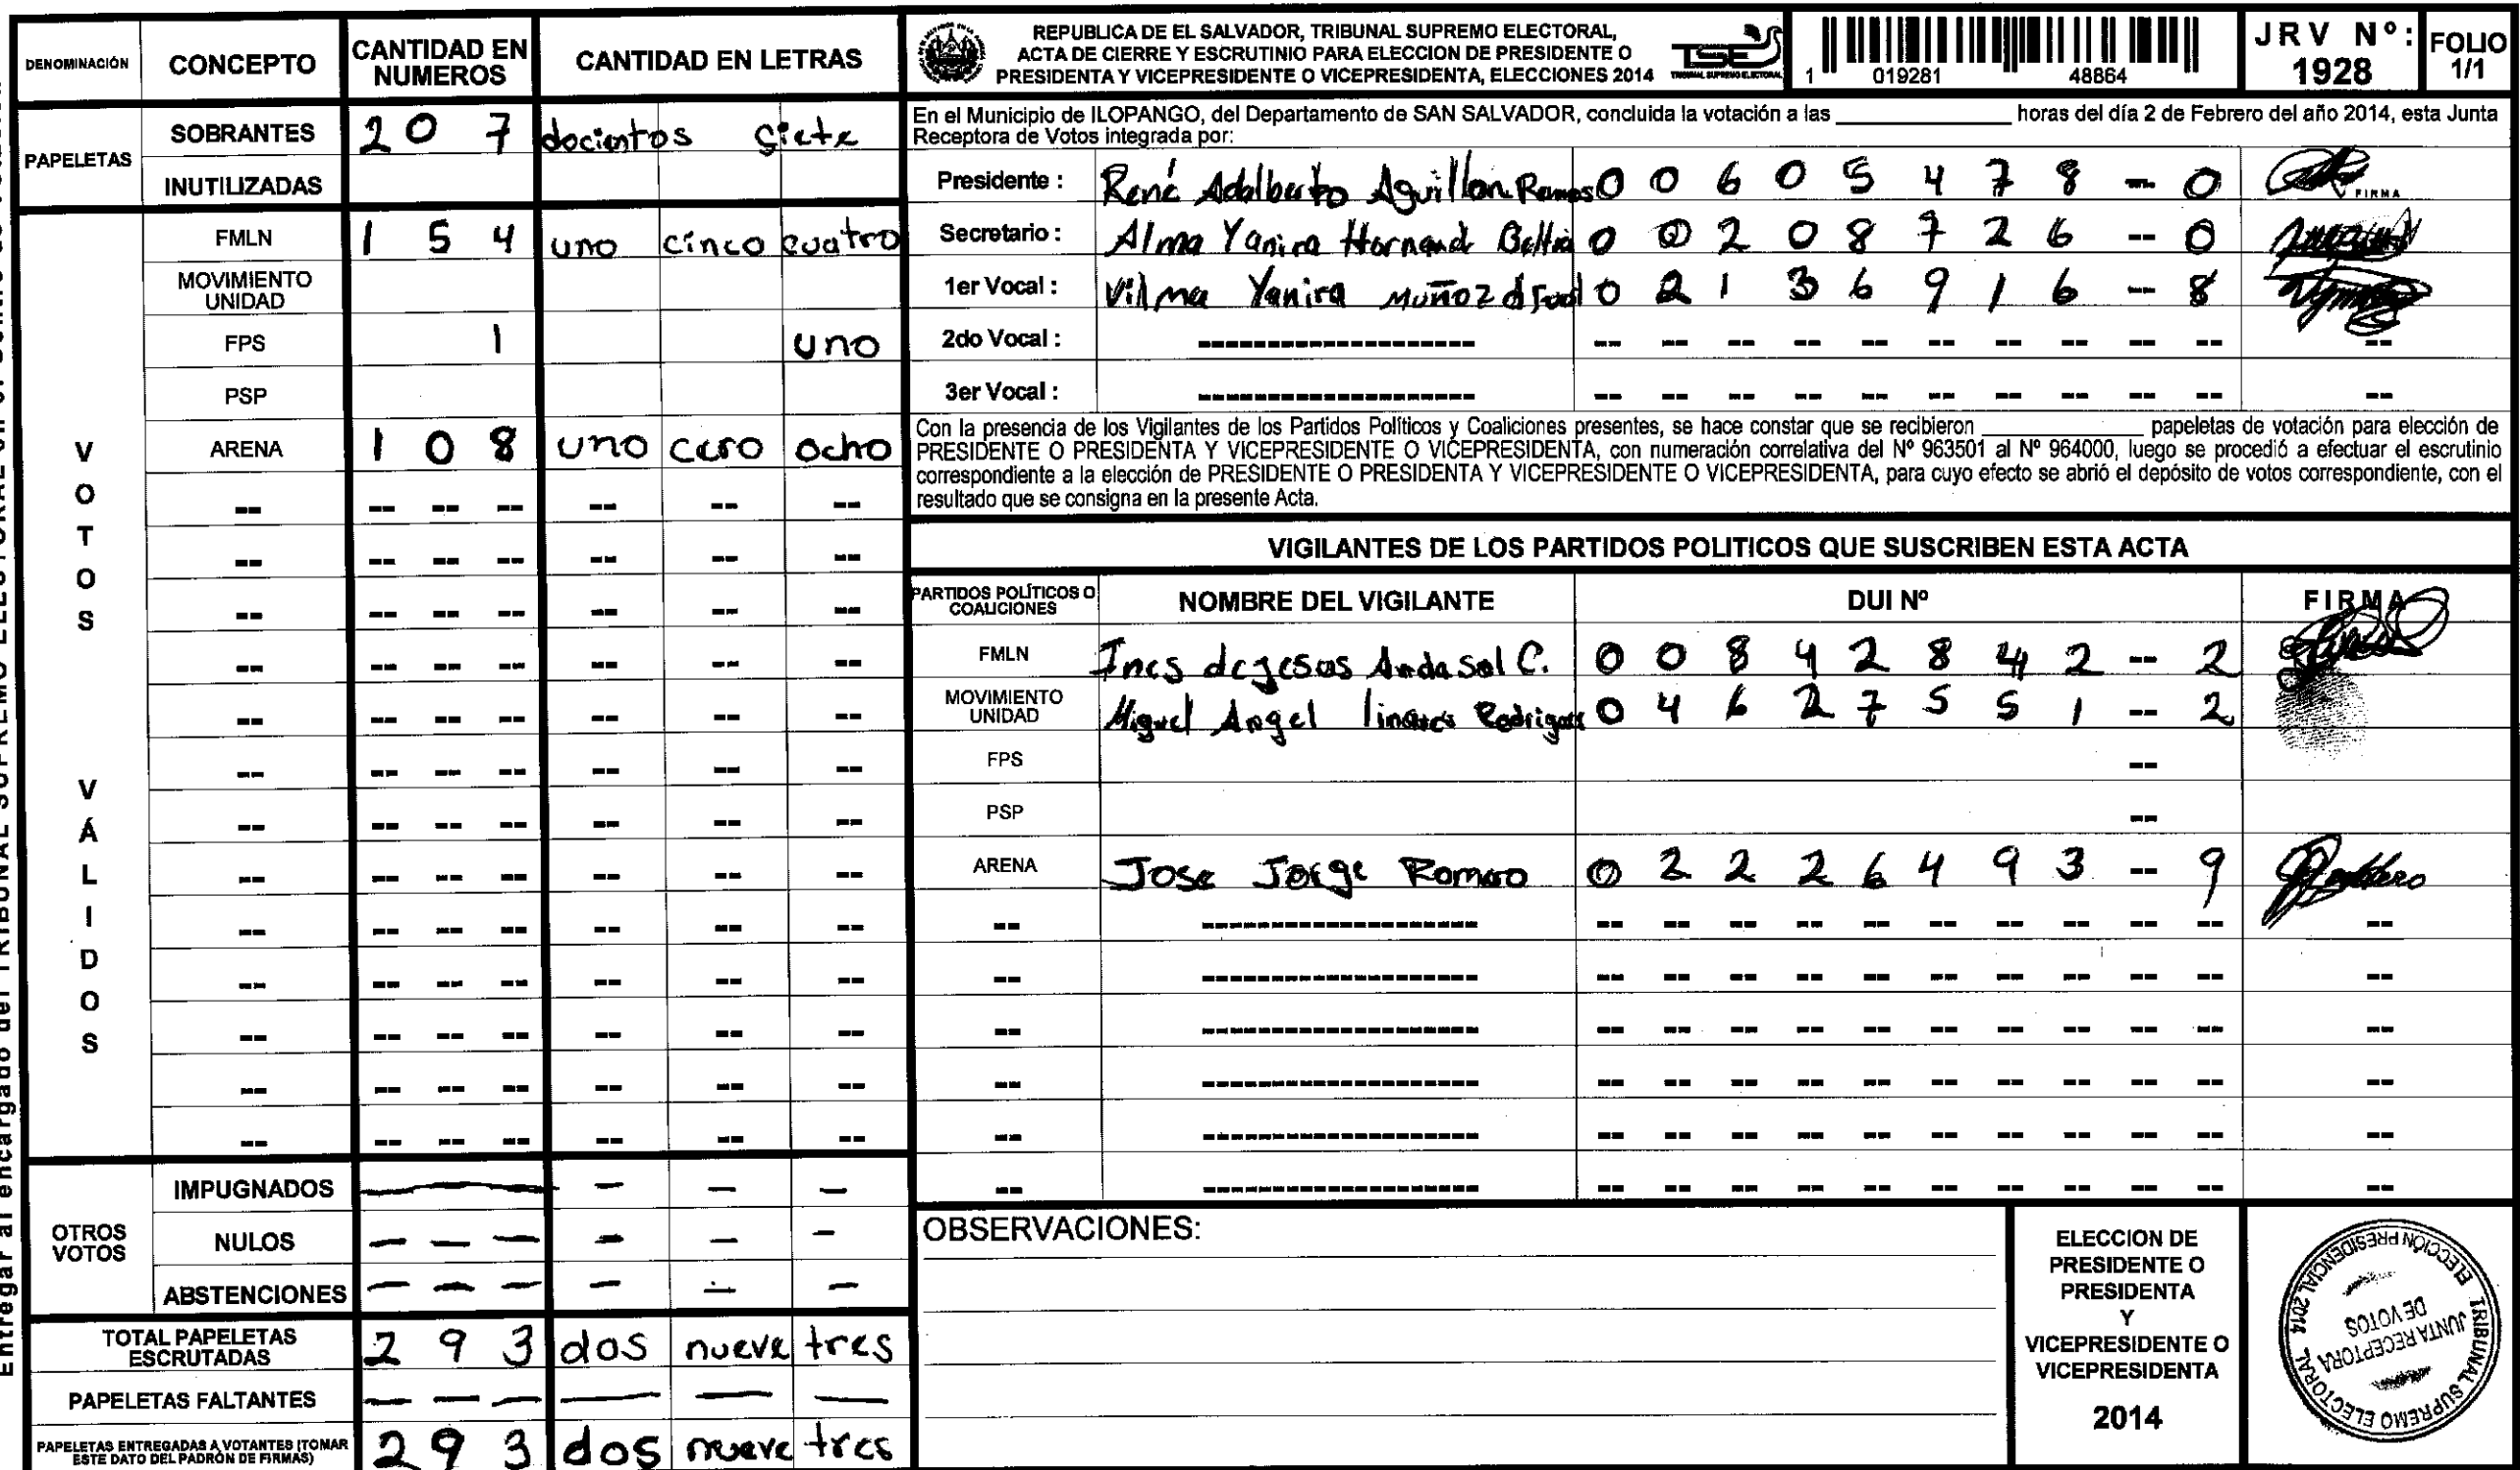 DENOMINACIÓN CONCEPTO CANTIDAD EN NUMEROS CANTIDAD EN LETRAS
PAPELETAS
SOBRANTES 2 0 7 docientos siete
INUTILIZADAS
VOTOS VÁLIDOS
FMLN 1 5 4 uno cinco cuatro
MOVIMIENTO UNIDAD
FPS 1 uno
PSP
ARENA 1 0 8 uno cero ocho
-- -- -- -- -- -- --
-- -- -- -- -- -- --
-- -- -- -- -- -- --
-- -- -- -- -- -- --
-- -- -- -- -- -- --
-- -- -- -- -- -- --
-- -- -- -- -- -- --
-- -- -- -- -- -- --
-- -- -- -- -- -- --
-- -- -- -- -- -- --
-- -- -- -- -- -- --
-- -- -- -- -- -- --
-- -- -- -- -- -- --
OTROS VOTOS
IMPUGNADOS — — — —
NULOS — — — — — —
ABSTENCIONES — — — — — —
TOTAL PAPELETAS ESCRUTADAS 2 9 3 dos nueve tres
PAPELETAS FALTANTES — — — — — —
PAPELETAS ENTREGADAS A VOTANTES (TOMAR ESTE DATO DEL PADRÓN DE FIRMAS) 2 9 3 dos nueve tres
REPUBLICA DE EL SALVADOR, TRIBUNAL SUPREMO ELECTORAL,
ACTA DE CIERRE Y ESCRUTINIO PARA ELECCION DE PRESIDENTE O
PRESIDENTA Y VICEPRESIDENTE O VICEPRESIDENTA, ELECCIONES 2014
TSE
TRIBUNAL SUPREMO ELECTORAL
1 019281 48864
JRV Nº: 1928
FOLIO 1/1
En el Municipio de ILOPANGO, del Departamento de SAN SALVADOR, concluida la votación a las ____________ horas del día 2 de Febrero del año 2014, esta Junta
Receptora de Votos integrada por:
Presidente : René Adalberto Aguillon Ramos 0 0 6 0 5 4 7 8 -- 0 FIRMA
Secretario : Alma Yanira 0 0 2 0 8 7 2 6 -- 0
1er Vocal : Vilma Yanira Muñoz 0 2 1 3 6 9 1 6 -- 8
2do Vocal : ------------------ -- -- -- -- -- -- -- -- -- -- --
3er Vocal : ------------------ -- -- -- -- -- -- -- -- -- -- --
Con la presencia de los Vigilantes de los Partidos Políticos y Coaliciones presentes, se hace constar que se recibieron ____________ papeletas de votación para elección de
PRESIDENTE O PRESIDENTA Y VICEPRESIDENTE O VICEPRESIDENTA, con numeración correlativa del Nº 963501 al Nº 964000, luego se procedió a efectuar el escrutinio
correspondiente a la elección de PRESIDENTE O PRESIDENTA Y VICEPRESIDENTE O VICEPRESIDENTA, para cuyo efecto se abrió el depósito de votos correspondiente, con el
resultado que se consigna en la presente Acta.
VIGILANTES DE LOS PARTIDOS POLITICOS QUE SUSCRIBEN ESTA ACTA
PARTIDOS POLÍTICOS O COALICIONES NOMBRE DEL VIGILANTE DUI Nº FIRMA
FMLN Ines de jesus Andasol C. 0 0 8 4 2 8 4 2 -- 2
MOVIMIENTO UNIDAD Miguel Angel 0 4 6 2 7 5 5 1 -- 2
FPS --
PSP --
ARENA Jose Jorge Romero 0 2 2 2 6 4 9 3 -- 9
-- ------------------ -- -- -- -- -- -- -- -- -- -- --
-- ------------------ -- -- -- -- -- -- -- -- -- -- --
-- ------------------ -- -- -- -- -- -- -- -- -- -- --
-- ------------------ -- -- -- -- -- -- -- -- -- -- --
-- ------------------ -- -- -- -- -- -- -- -- -- -- --
-- ------------------ -- -- -- -- -- -- -- -- -- -- --
OBSERVACIONES:
ELECCION DE
PRESIDENTE O
PRESIDENTA
Y
VICEPRESIDENTE O
VICEPRESIDENTA
2014
TRIBUNAL SUPREMO ELECTORAL
ELECCIÓN PRESIDENCIAL 2014
JUNTA RECEPTORA
DE VOTOS